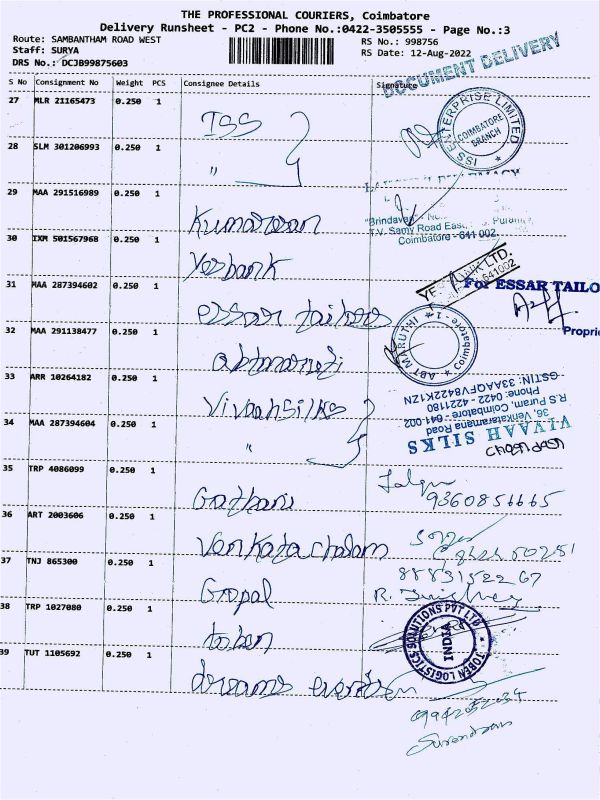 THE PROFESSIONAL COURIERS, Coimbatore
Delivery Runsheet - PC2 - Phone No.:0422-3505555 - Page No.:3
Route: SAMBANTHAM ROAD WEST
RS No.: 998756
Staff: SURYA
RS Date: 12-Aug-2022
DRS No.: DCJB99875603
DOCUMENT DELIVERY
S No Consignment No Weight PCS Consignee Details Signature
27 MLR 21165473 0.250 1 ISS
ISS ENTERPRISE LIMITED
COIMBATORE BRANCH
28 SLM 301206993 0.250 1 "
29 MAA 291516989 0.250 1 Kumaresan
"Brindavan"
T.V. Samy Road East, Puram,
Coimbatore - 641 002.
30 IXM 501567968 0.250 1 Yesbank
YES BANK LTD.
641002
31 MAA 287394602 0.250 1 essar tailors
For ESSAR TAILO
Proprie
32 MAA 291138477 0.250 1 abtmaruti
ABT MARUTHI Coimbatore - 1
33 ARR 10264182 0.250 1 Vivaahsilks
VIVAAH SILKS
36, Venkataramana Road
R.S Puram, Coimbatore - 641 002
Phone: 0422 - 4221180
GSTIN: 33AAQFV8422K1ZN
34 MAA 287394604 0.250 1 "
35 TRP 4086099 0.250 1
9360856665
36 ART 2003606 0.250 1 Venkatachalam
37 TNJ 865300 0.250 1 Gopal
8883152267
R.
38 TRP 1027080 0.250 1 toben
TOBEN LOGISTICS SOLUTIONS PVT LTD
INDIA
39 TUT 1105692 0.250 1 dreams
Surendran